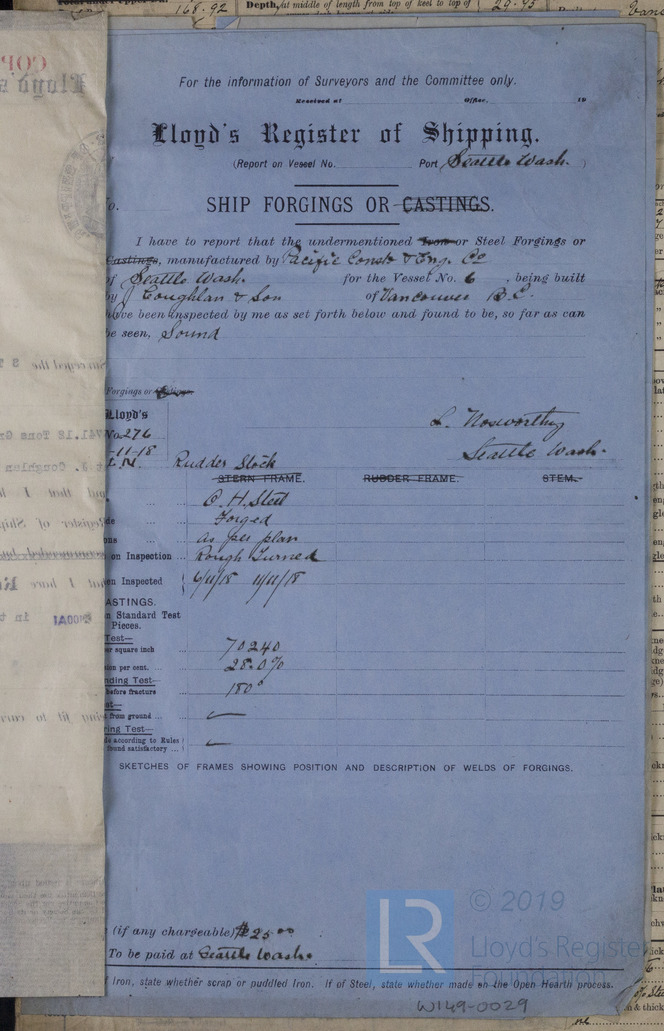 168.92
Depth, at middle of length from top of keel to top of
29.95
For the information of Surveyors and the Committee only.
Received at Office, 19
Lloyd's Register of Shipping.
(Report on Vessel No. Port Seattle Wash. )
o.
SHIP FORGINGS OR CASTINGS.
I have to report that the undermentioned Iron or Steel Forgings or
Castings, manufactured by Pacific Const & Eng. Co
of Seattle Wash. for the Vessel No. 6, being built
by Coughlan & Son of Vancouver B.C.
have been inspected by me as set forth below and found to be, so far as can
be seen, Sound
Forgings or
Lloyd's
No 276
-11-18
L.N.
L. Nosworthy
Seattle Wash.
Rudder Stock
STERN FRAME. RUDDER FRAME. STEM.
O. H. Steel
Forged
as per plan
on Inspection Rough Turned
en Inspected 6/11/18 11/11/18
ASTINGS.
n Standard Test
Pieces.
Test—
er square inch 70240
ion per cent. 28.0%
nding Test—
before fracture 180°
st—
from ground
ring Test—
de according to Rules
found satisfactory
SKETCHES OF FRAMES SHOWING POSITION AND DESCRIPTION OF WELDS OF FORGINGS.
(if any chargeable) $25.00
To be paid at Seattle Wash.
f Iron, state whether scrap or puddled Iron. If of Steel, state whether made on the Open Hearth process.
LR
© 2019
Lloyd's Register
Foundation
W149-0029